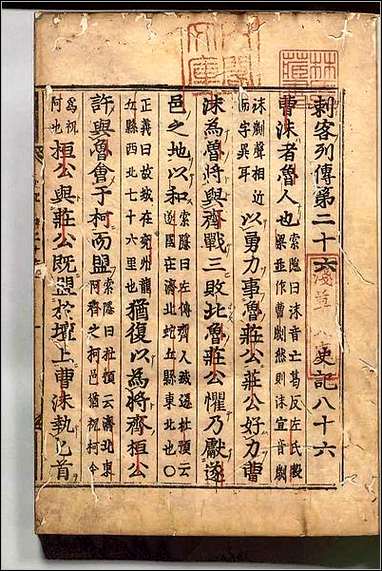 刺客列傳第二十六 史記八十六
曹沫者魯人也 索隱曰沫音亡葛反左氏穀
梁並作曹劌然則沫宜音劌
沫劌聲相近
而字異耳 以勇力事魯莊公莊公好力曹
沫為魯將與齊戰三敗北魯莊公懼乃獻遂
邑之地以和 索隱曰左傳齊人滅遂杜預云
遂國在濟北蛇丘縣東北也〇
正義曰故城在兗州龍
丘縣西北七十六里也 猶復以為將齊桓公
許與魯會于柯而盟 索隱曰杜預云濟北東
阿齊之柯邑猶祝柯今
為祝
阿也 桓公與莊公既盟於壇上曹沫執匕首
淺草